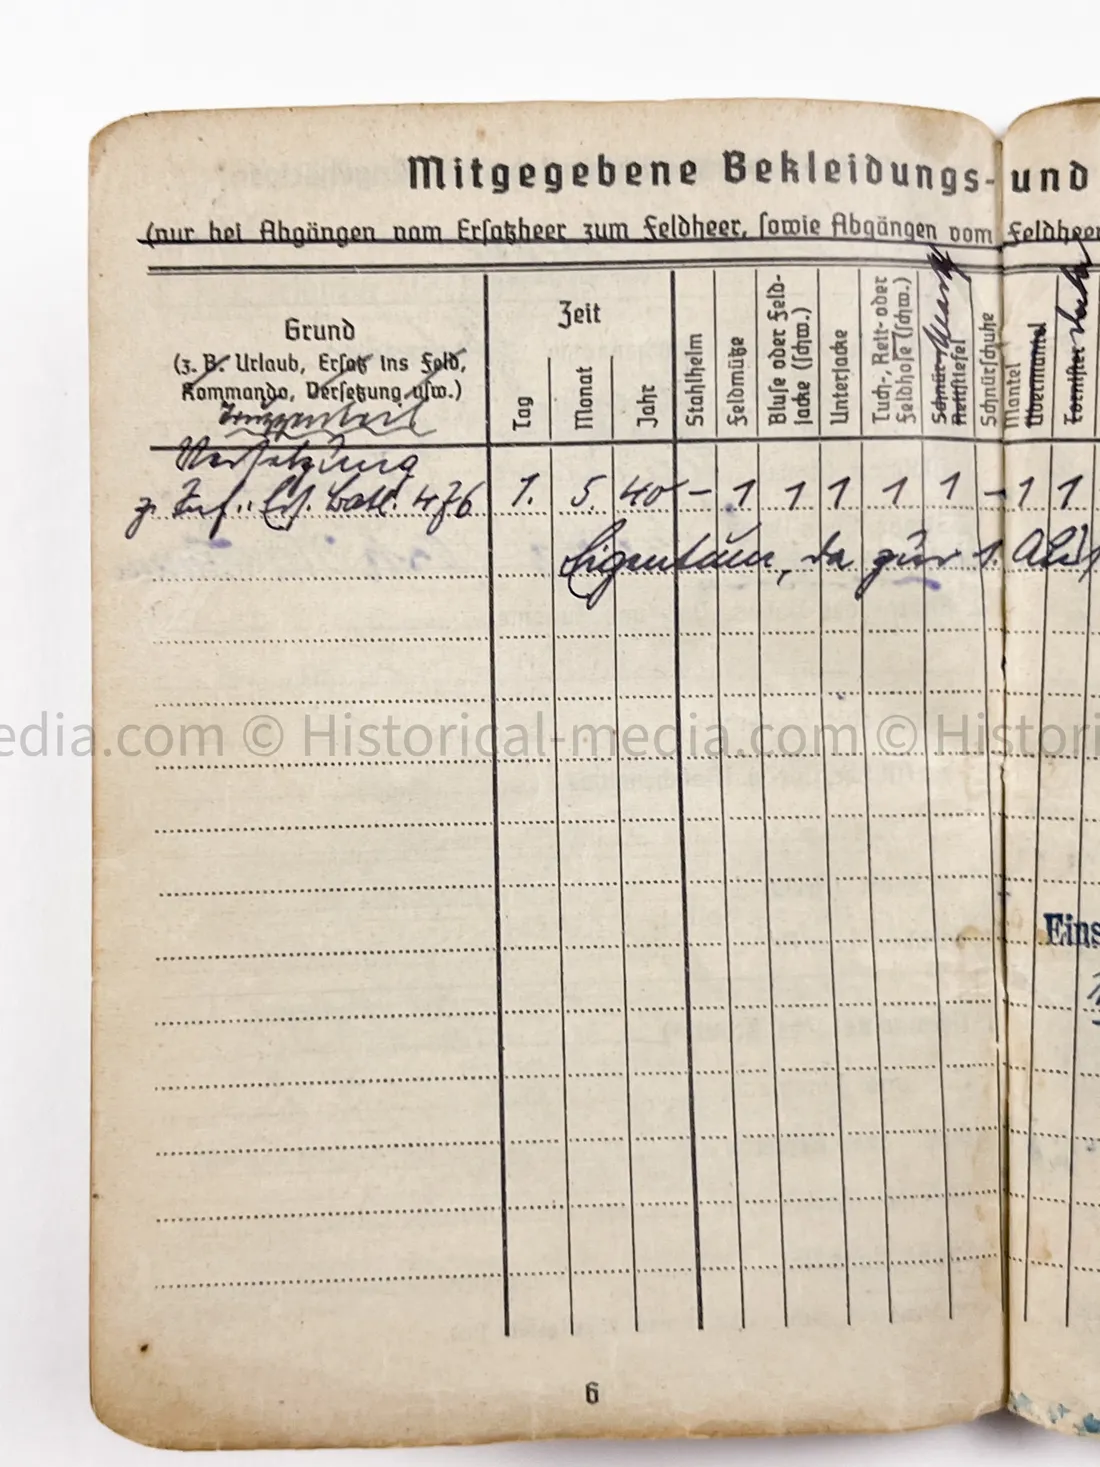 Mitgegebene Bekleidungs- und
(nur bei Abgängen vom Ersatzheer zum Feldheer, sowie Abgängen vom Feldheer
Grund
(z. B. Urlaub, Ersatz ins Feld,
Kommando, Versetzung usw.)
Zeit
Tag
Monat
Jahr
Stahlhelm
Feldmütze
Bluse oder Feld-
jacke (schw.)
Unterjacke
Tuch-, Reit- oder
Feldhose (schw.)
Schnür-
Reitstiefel
Marsch
Schnürschuhe
Mantel
Übermantel
Tornister
Truppenteil
Versetzung
z. Inf. Ers. Batl. 476 1. 5. 40 – 1 1 1 1 1 – 1 1
Eigentum, da zur 1.
edia.com © Historical-media.com © Histori
Eins
6